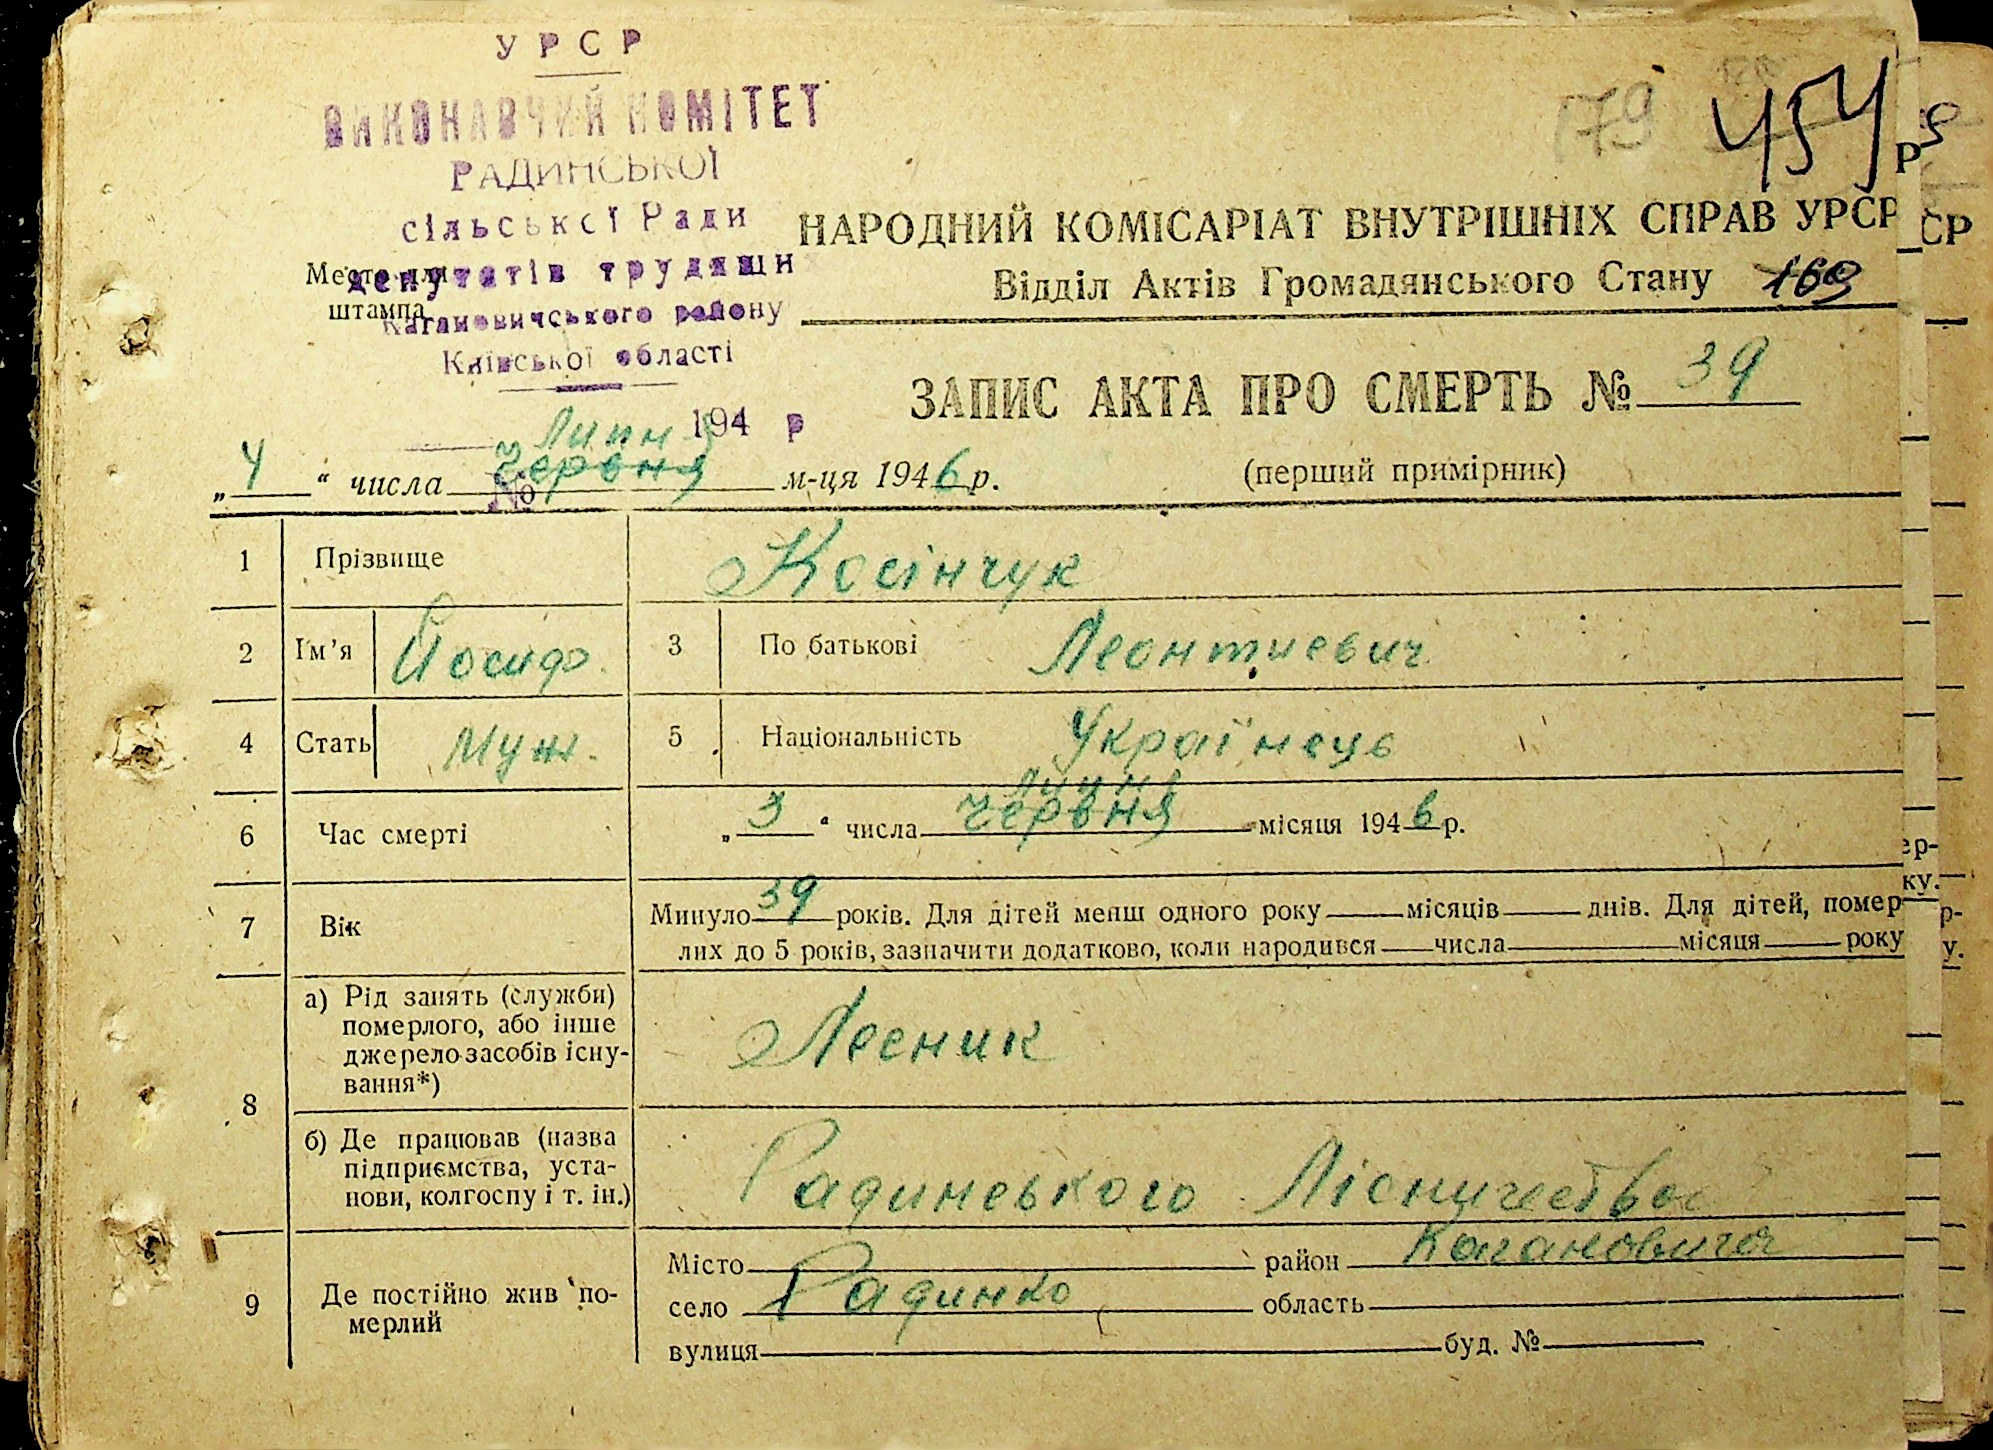 УРСР
ВИКОНАВЧИЙ КОМІТЕТ
РАДИНСЬКОЇ
сільської Ради
депутатів трудящи
Кагановичського району
Київської області
194 р
№
Место для
штампа
179
454
НАРОДНИЙ КОМІСАРІАТ ВНУТРІШНІХ СПРАВ УРСР
Відділ Актів Громадянського Стану 169
ЗАПИС АКТА ПРО СМЕРТЬ № 39
(перший примірник)
Липня
„ 4 “ числа червня м-ця 1946 р.
1 Прізвище Косінчук
2 Ім’я Йосиф. 3 По батькові Леонтиевич
4 Стать Муж. 5 Національність Українець
липня
6 Час смерті „ 3 “ числа червня місяця 1946 р.
7 Вік Минуло 39 років. Для дітей менш одного року місяців днів. Для дітей, помер-
лих до 5 років, зазначити додатково, коли народився числа місяця року
8 а) Рід занять (служби)
померлого, або інше
джерело засобів існу-
вання*) Лесник
б) Де працював (назва
підприємства, уста-
нови, колгоспу і т. ін.) Радинського Лісничества
9 Де постійно жив по-
мерлий
Місто район Кагановича
село Радинко область
вулиця буд. №